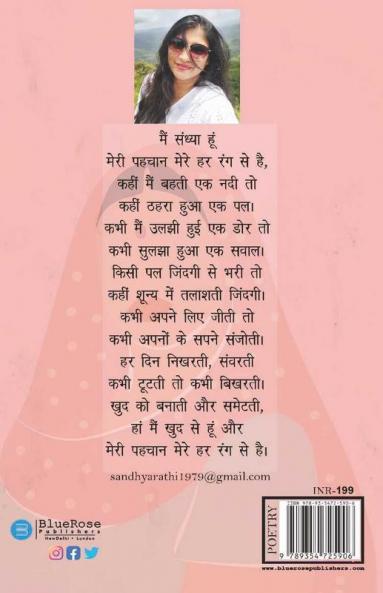 मैं संध्या हूं
मेरी पहचान मेरे हर रंग से है,
कहीं मैं बहती एक नदी तो
कहीं ठहरा हुआ एक पल।
कभी मैं उलझी हुई एक डोर तो
कभी सुलझा हुआ एक सवाल।
किसी पल जिंदगी से भरी तो
कहीं शून्य में तलाशती जिंदगी।
कभी अपने लिए जीती तो
कभी अपनों के सपने संजोती।
हर दिन निखरती, संवरती
कभी टूटती तो कभी बिखरती।
खुद को बनाती और समेटती,
हां मैं खुद से हूं और
मेरी पहचान मेरे हर रंग से है।
sandhyarathi1979@gmail.com
INR-199
ISBN 978-93-5472-590-6
POETRY
9 789354 725906
www.bluerosepublishers.com
BlueRose
Publishers
NewDelhi • London